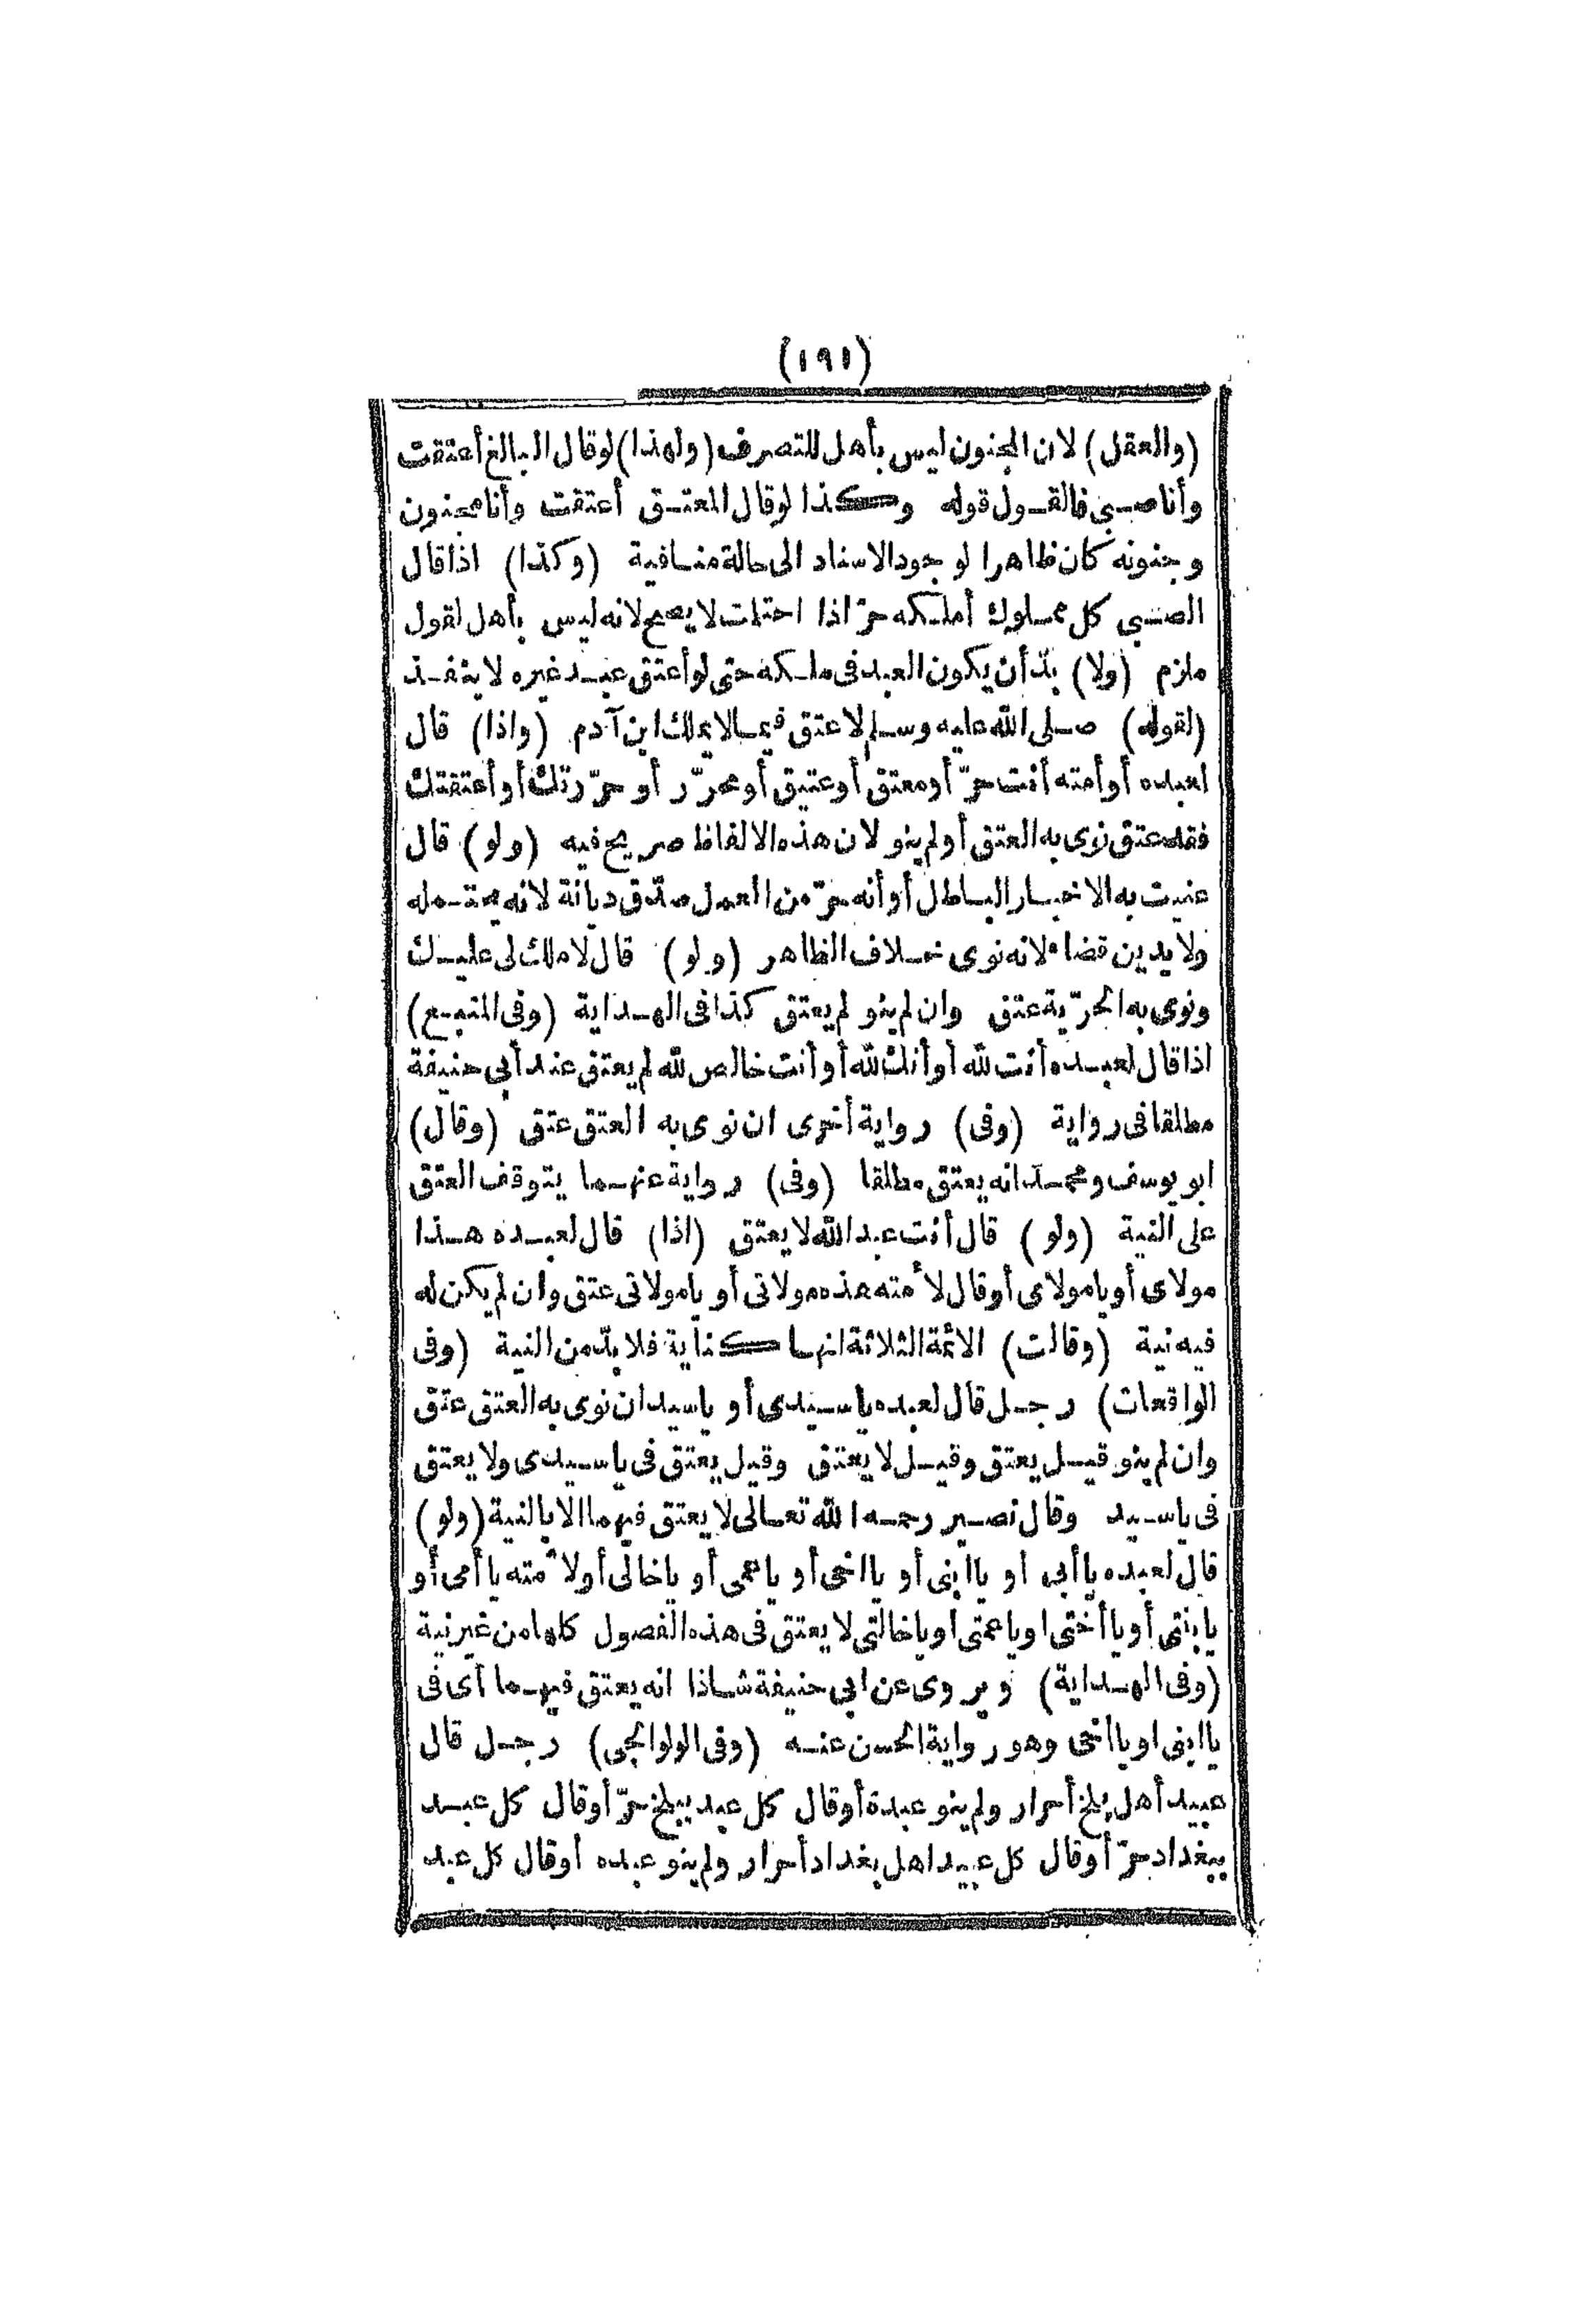 (١٩١)
(والعقل) لان المجنون ليس بأهل للتصرف (ولهذا) لو قال البالغ أعتقت
وأنا صبي فالقول قوله وكذا لو قال المعتق أعتقت وأنا مجنون
وجنونه كان ظاهرا لوجود الاسناد الى حالة منافية (وكذا) اذا قال
الصبي كل مملوك أملكه حرّ اذا احتلمت لا يصح لانه ليس بأهل لقول
ملزم (ولا) بدّ أن يكون العبد فى ملكه حتى لو أعتق عبد غيره لا ينفذ
(لقوله) صلى الله عليه وسلم لا عتق فيما لا يملك ابن آدم (واذا) قال
لعبده أو أمته أنت حرّ أو معتق أو عتيق أو محرّر أو حرّرتك أو أعتقتك
فقد عتق نوى به العتق أو لم ينو لان هذه الالفاظ صريح فيه (ولو) قال
عنيت به الاخبار الباطل أو أنه حرّ من العمل صدّق ديانة لانه يحتمله
ولا يدين قضاء لانه نوى خلاف الظاهر (ولو) قال لا ملك لى عليك
ونوى به الحرّية عتق وان لم ينو لم يعتق كذا فى الهداية (وفى المنبع)
اذا قال لعبده أنت لله أو أنك لله أو أنت خالص لله لم يعتق عند أبى حنيفة
مطلقا فى رواية (وفى) رواية أخرى ان نوى به العتق عتق (وقال)
ابو يوسف ومحمد انه يعتق مطلقا (وفى) رواية عنهما يتوقف العتق
على النية (ولو) قال أنت عبد الله لا يعتق (اذا) قال لعبده هذا
مولاى أو يا مولاى أو قال لأمته هذه مولاتى أو يا مولاتى عتق وان لم يكن له
فيه نية (وقالت) الائمة الثلاثة انها كناية فلا بدّ من النية (وفى
الواقعات) رجل قال لعبده يا سيدى أو يا سيد ان نوى به العتق عتق
وان لم ينو قيل يعتق وقيل لا يعتق وقيل يعتق فى يا سيدى ولا يعتق
فى يا سيد وقال نصير رحمه الله تعالى لا يعتق فيهما الا بالنية (ولو)
قال لعبده يا أبى او يا ابنى أو يا اخى أو يا عمى أو يا خالى أو لأمته يا أمى أو
يا بنتى أو يا أختى او يا عمتى أو يا خالتى لا يعتق فى هذه الفصول كلها من غير نية
(وفى الهداية) ويروى عن ابى حنيفة شاذا انه يعتق فيهما أى فى
يا ابنى او يا أخى وهو رواية الحسن عنه (وفى الولوالجى) رجل قال
عبيد أهل بلخ أحرار ولم ينو عبده أو قال كل عبد ببلخ حرّ أو قال كل عبد
ببغداد حرّ أو قال كل عبيد اهل بغداد أحرار ولم ينو عبده أو قال كل عبد